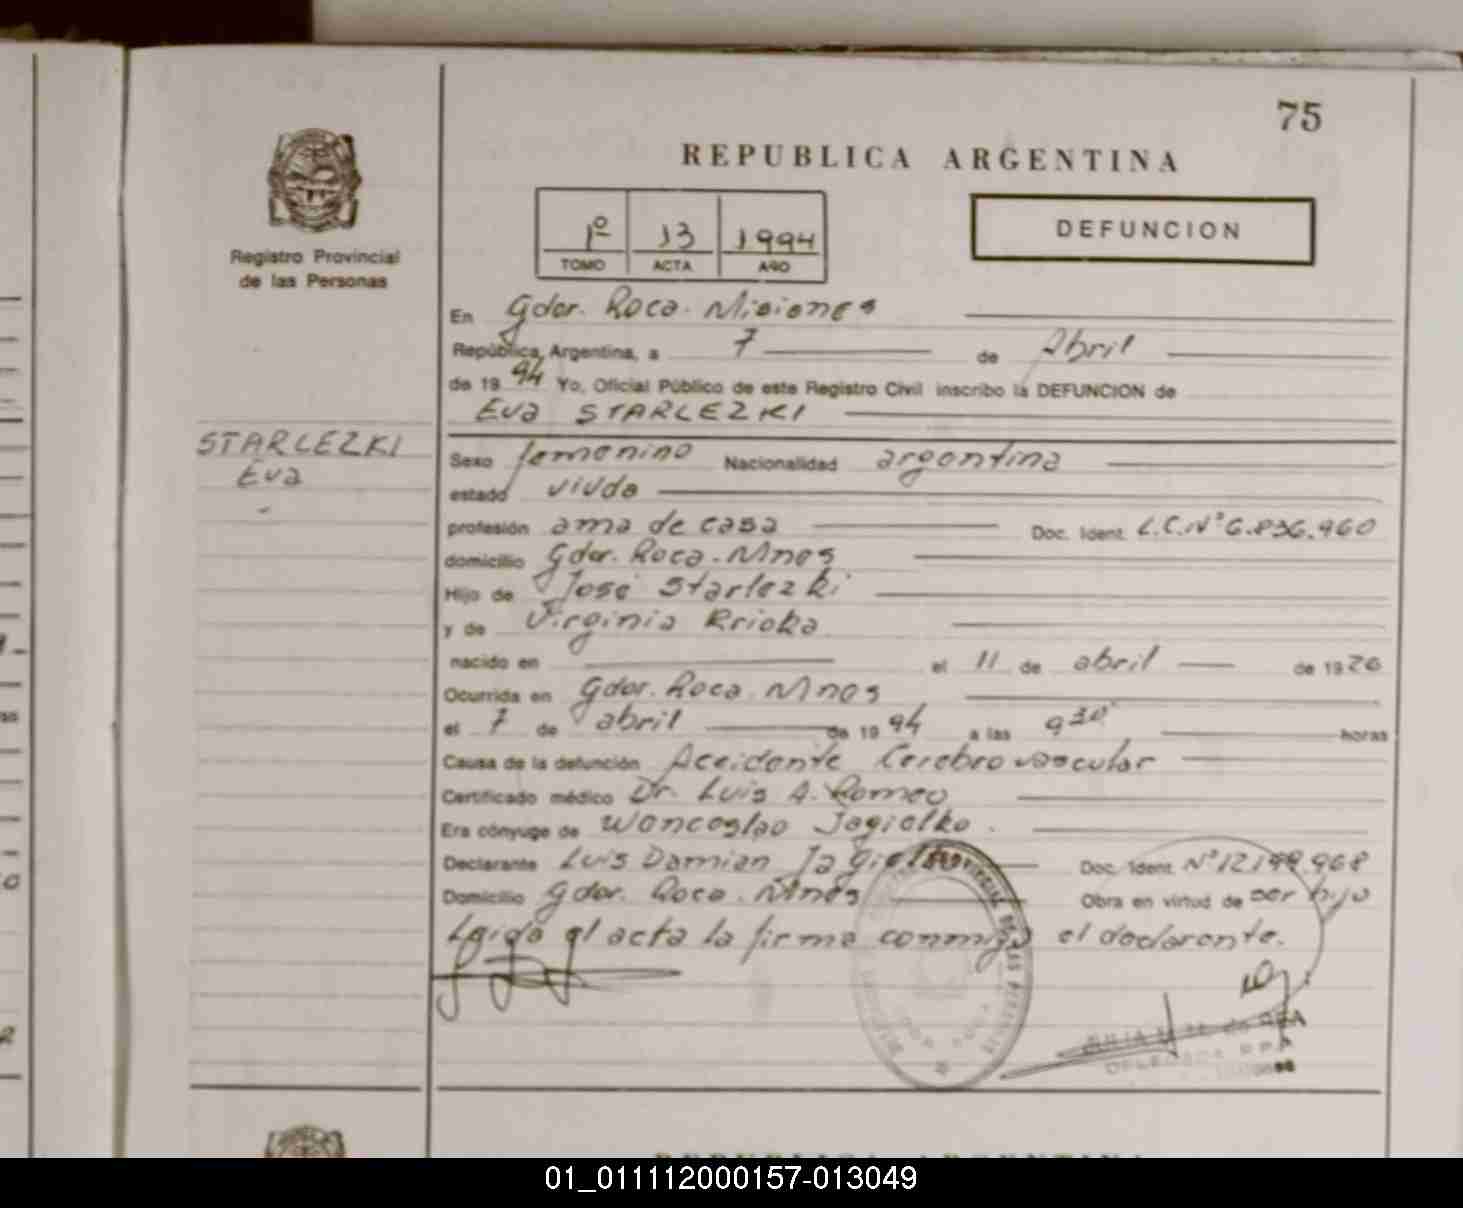 75
REPUBLICA ARGENTINA
Registro Provincial
de las Personas
1º 13 1994
TOMO ACTA AÑO
DEFUNCION
En Gdor. Roca. Misiones
República Argentina, a 7 de Abril
de 1994 Yo, Oficial Público de este Registro Civil inscribo la DEFUNCION de
Eva STARLEZKI
STARLEZKI
Eva
Sexo femenino Nacionalidad argentina
estado viuda
profesión ama de casa Doc. Ident. L.C.Nº 6.836.960
domicilio Gdor. Roca. Mnes
Hijo de José Starlezki
y de Virginia Krioka
nacido en el 11 de abril de 1920
Ocurrida en Gdor. Roca. Mnes
el 7 de abril de 1994 a las 9 30 horas
Causa de la defunción Accidente Cerebro vascular
Certificado médico Dr. Luis A. Romeo
Era cónyuge de Wenceslao Jagielko.
Declarante Luis Damian Jagielko Doc. Ident. Nº 12.199.968
Domicilio Gdor. Roca. Mnes Obra en virtud de ser hijo
Leída el acta la firma conmigo el declarante.
REPUBLICA ARGENTINA
01_011112000157-013049